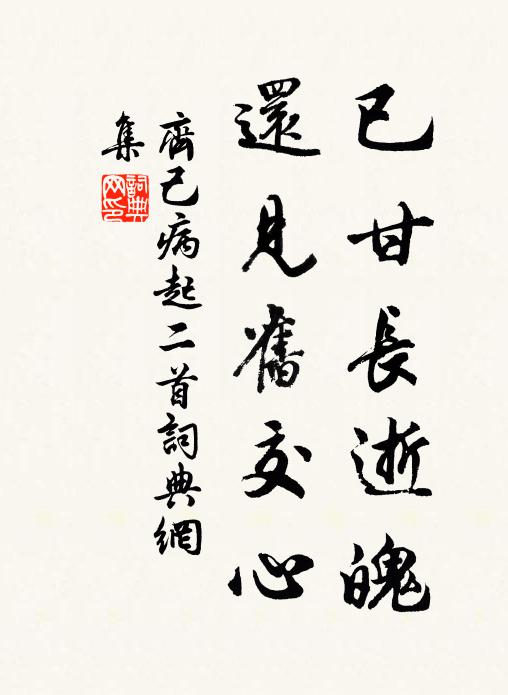 已甘長逝魄
還見舊交心
齊己病起二首詞典網
集
詞典网印